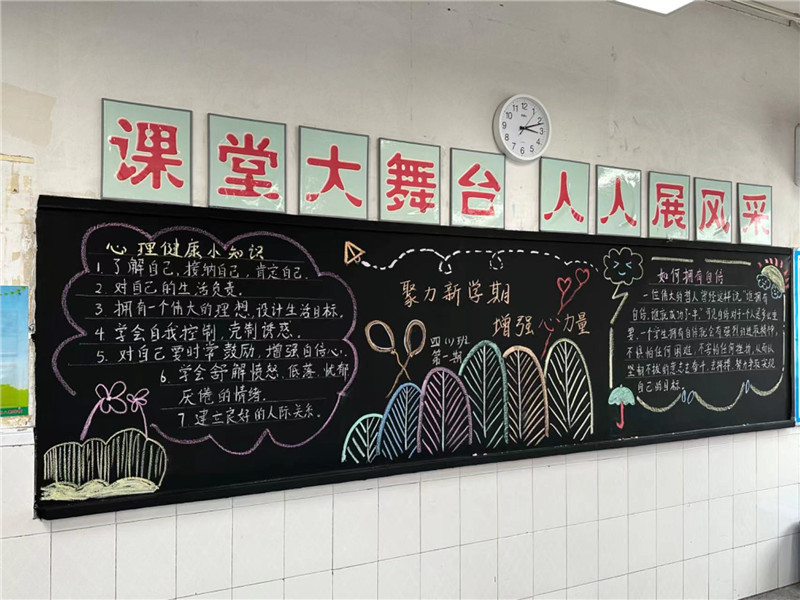 课堂大舞台 人人展风采
心理健康小知识
1.了解自己,接纳自己,肯定自己.
2.对自己的生活负责.
3.拥有一个伟大的理想,设计生活目标.
4.学会自我控制,克制诱惑.
5.对自己要时常鼓励,增强自信心.
6.学会舒解愤怒、低落、忧郁
厌倦的情绪.
7.建立良好的人际关系.
聚力新学期
增强心力量
四(1)班
第一期
如何拥有自信
一位伟大的哲人曾经这样说:"谁拥有
自信,谁就成功了一半."可见自信对一个人是多么重
要.一个学生拥有自信就会有强烈的进取精神,
不惧怕任何困难,不害怕任何挫折,从而以
坚韧不拔的意志去奋斗、去拼搏、努力争取实现
自己的目标.